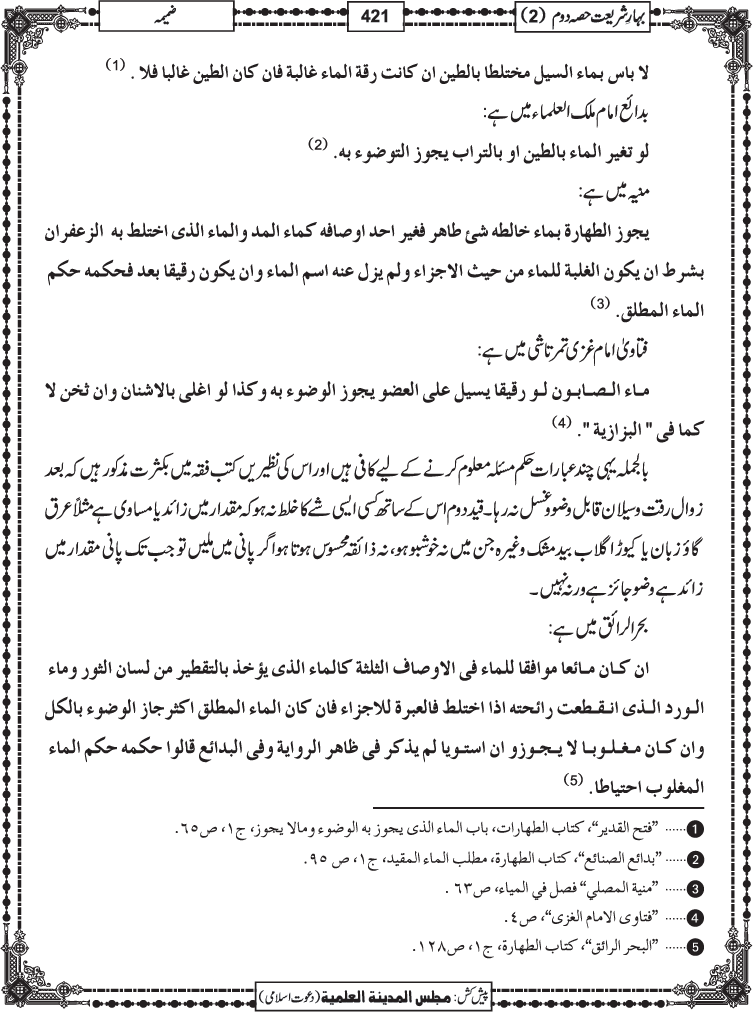 بہارِ شریعت حصہ دوم (2)
421
ضمیمہ
لا باس بماء السیل مختلطا بالطین ان کانت رقة الماء غالبة فان کان الطین غالبا فلا . (1)
بدائع امام ملک العلماء میں ہے:
لو تغیر الماء بالطین او بالتراب یجوز التوضوء به. (2)
منیہ میں ہے:
یجوز الطهارة بماء خالطه شئ طاهر فغیر احد اوصافه کماء المد والماء الذی اختلط به الزعفران
بشرط ان یکون الغلبة للماء من حیث الاجزاء ولم یزل عنه اسم الماء وان یکون رقیقا بعد فحکمه حکم
الماء المطلق. (3)
فتاویٰ امام غزی تمرتاشی میں ہے:
ماء الصابون لو رقیقا یسیل علی العضو یجوز الوضوء به وکذا لو اغلی بالاشنان وان ثخن لا
کما فی " البزازیة ". (4)
بالجملہ یہی چند عبارات حکم مسئلہ معلوم کرنے کے لیے کافی ہیں اور اس کی نظیریں کتب فقہ میں بکثرت مذکور ہیں کہ بعد
زوال رقت وسیلان قابل وضو وغسل نہ رہا۔ قید دوم اس کے ساتھ کسی ایسی شے کا خلط نہ ہو کہ مقدار میں زائد یا مساوی ہے مثلاً عرق
گاؤ زبان یا کیوڑا گلاب بید مشک وغیرہ جن میں نہ خوشبو ہو، نہ ذائقہ محسوس ہوتا ہو اگر پانی میں ملیں تو جب تک پانی مقدار میں
زائد ہے وضو جائز ہے ورنہ نہیں۔
بحر الرائق میں ہے:
ان کان مائعا موافقا للماء فی الاوصاف الثلثة کالماء الذی یؤخذ بالتقطیر من لسان الثور وماء
الورد الذی انقطعت رائحته اذا اختلط فالعبرة للاجزاء فان کان الماء المطلق اکثر جاز الوضوء بالکل
وان کان مغلوبا لا یجوزو ان استویا لم یذکر فی ظاهر الروایة وفی البدائع قالوا حکمه حکم الماء
المغلوب احتیاطا. (5)
1 ...... ”فتح القدير“، كتاب الطهارات، باب الماء الذى يجوز به الوضوء ومالا يجوز، ج١، ص٦٥.
2 ...... ”بدائع الصنائع“، كتاب الطهارة، مطلب الماء المقيد، ج١، ص ٩٥.
3 ...... ”منية المصلي“ فصل في المياء، ص٦٣ .
4 ...... ”فتاوى الامام الغزى“، ص٤.
5 ...... ”البحر الرائق“، كتاب الطهارة، ج١، ص١٢٨.
پیش کش: مجلس المدینة العلمیة (دعوت اسلامی)